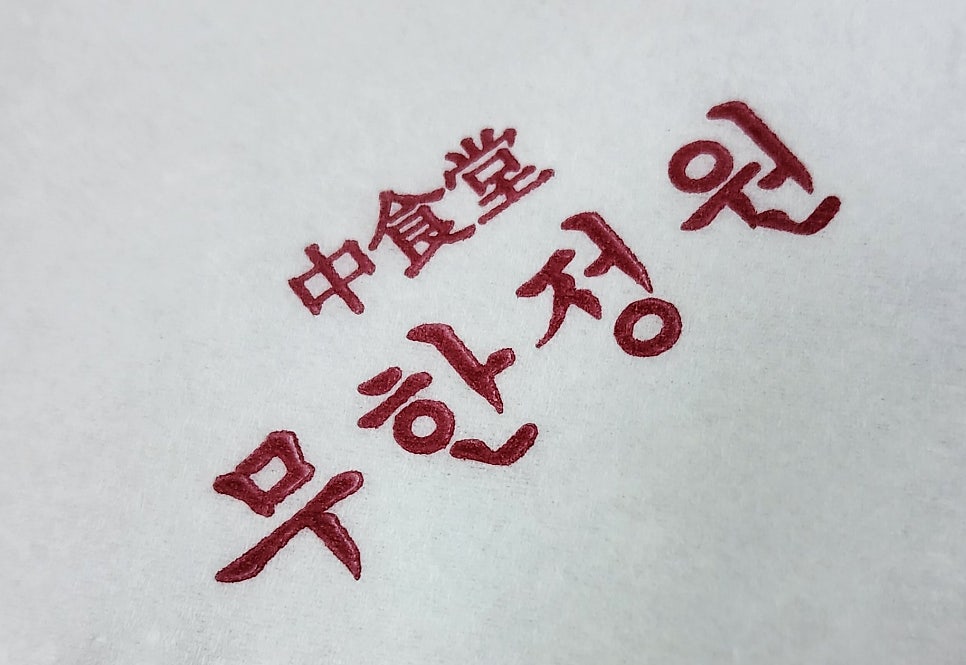 中食堂
무한정원